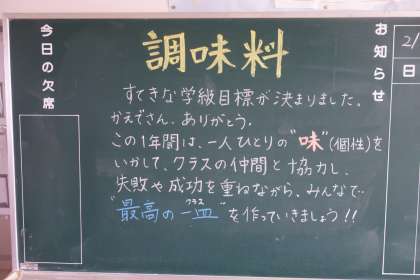 調味料
すてきな学級目標が決まりました。
かえでさん、ありがとう。
この1年間は、一人ひとりの"味"(個性)を
いかして、クラスの仲間と協力し、
失敗や成功を重ねながら、みんなで
"最高の一皿"を作っていきましょう!!
クラス
今日の欠席
お知らせ
2/
日